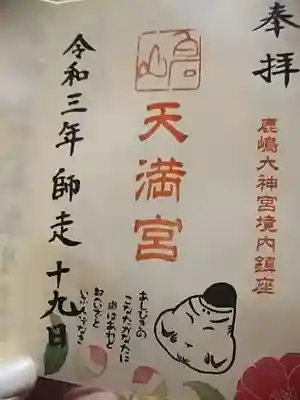 奉拝
鹿嶋大神宮境内鎮座
天満宮
あしびきの
こなたかなたに
令和三年 師走 十九日